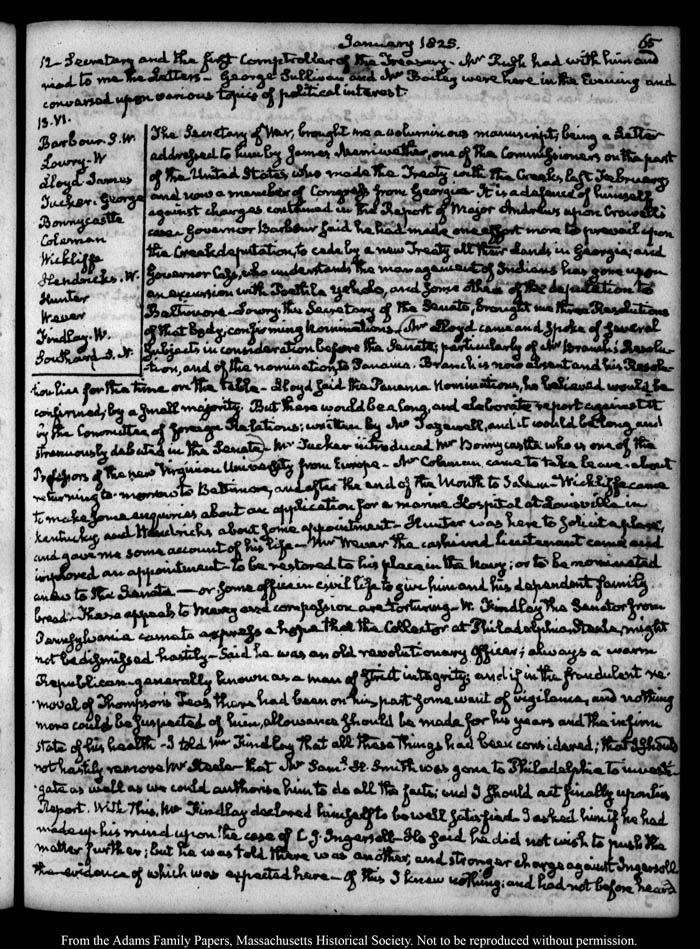 January 1825. 65
12- Secretary and the first Comptroller of the Treasury - Mr Rush had with him and
read to me the Letters - George Sullivan and Mr Bailey were here in the Evening and
conversed upon various topics of political interest.
13. VI.
Barbour. J. W.
Lowry - W
Lloyd James
Tucker. George
Bonnycastle
Coleman
Wickliffe
Hendricks. W.
Hunter
Wever
Findlay. W.
Southard S. L.
The Secretary of War, brought me a voluminous manuscript, being a Letter
addressed to him by James Meriwether, one of the Commissioners on the part
of the United States who made the Treaty with the Creeks last February
and now a member of Congress from Georgia. It is a defence of himself
against charges contained in the Report of Major Andrews upon Crowell's
case. Governor Barbour said he had made one effort more to prevail upon
the Creek deputation, to cede by a new Treaty all their Lands in Georgia; and
Governor Cass, who understands the management of Indians has gone upon
an excursion with Yoholo, and some others of the deputation to
Baltimore - Lowry, the Secretary of the Senate, brought me three Resolutions
of that body, confirming nominations. Mr Lloyd came and spoke of several
subjects in consideration before the Senate; particularly of Mr Branch's Resolu-
tion, and of the nomination to Panama. Branch is now absent and his Resolu-
tion lies for the time on the table - Lloyd said the Panama Nominations, he believed would be
confirmed, by a small majority. But there would be a long, and elaborate report against it
by the Committee of foreign Relations; written by Mr Tazewell, and it would be long and
strenuously debated in the Senate. Mr Tucker introduced Mr Bonnycastle who is one of the
Professors of the new Virginian University from Europe - Mr Coleman came to take leave - about
returning to-morrow to Baltimore, and after the end of the Month to Salem - Wickliffe came
to make some enquiries about an application for a marine Hospital at Louisville in
Kentucky and Hendricks about some appointment - Hunter was here to solicit a place,
and gave me some account of his life - Mr Wever the cashiered lieutenant came and
implored an appointment - to be restored to his place in the Navy; or to be nominated
anew to the Senate - or some office in civil life to give him and his dependent family
bread. These appeals to mercy and compassion are torturing - W. Findlay the Senator from
Pennsylvania came to express a hope that the Collector at Philadelphia, Steele, might
not be dismissed hastily - Said he was an old revolutionary Officer; always a warm
Republican - generally known as a man of strict integrity; and if in the fraudulent re-
moval of Thompson's Teas, there had been on his part some want of vigilance, and nothing
more could be suspected of him, allowance should be made for his years and the infirm
state of his health - I told Mr Findlay that all these things had been considered; that I should
not hastily remove Mr Steele - that Mr Saml. H. Smith was gone to Philadelphia to investi-
gate as well as we could authorise him to do all the facts; and I should act finally upon his
Report. With this, Mr Findlay declared himself to be well satisfied. I asked him if he had
made up his mind upon the case of C. J. Ingersoll - He said he did not wish to push the
matter further; but he was told there was another, and stronger charge against Ingersoll
the evidence of which was expected here - of this I knew nothing; and had not before heard
From the Adams Family Papers, Massachusetts Historical Society. Not to be reproduced without permission.